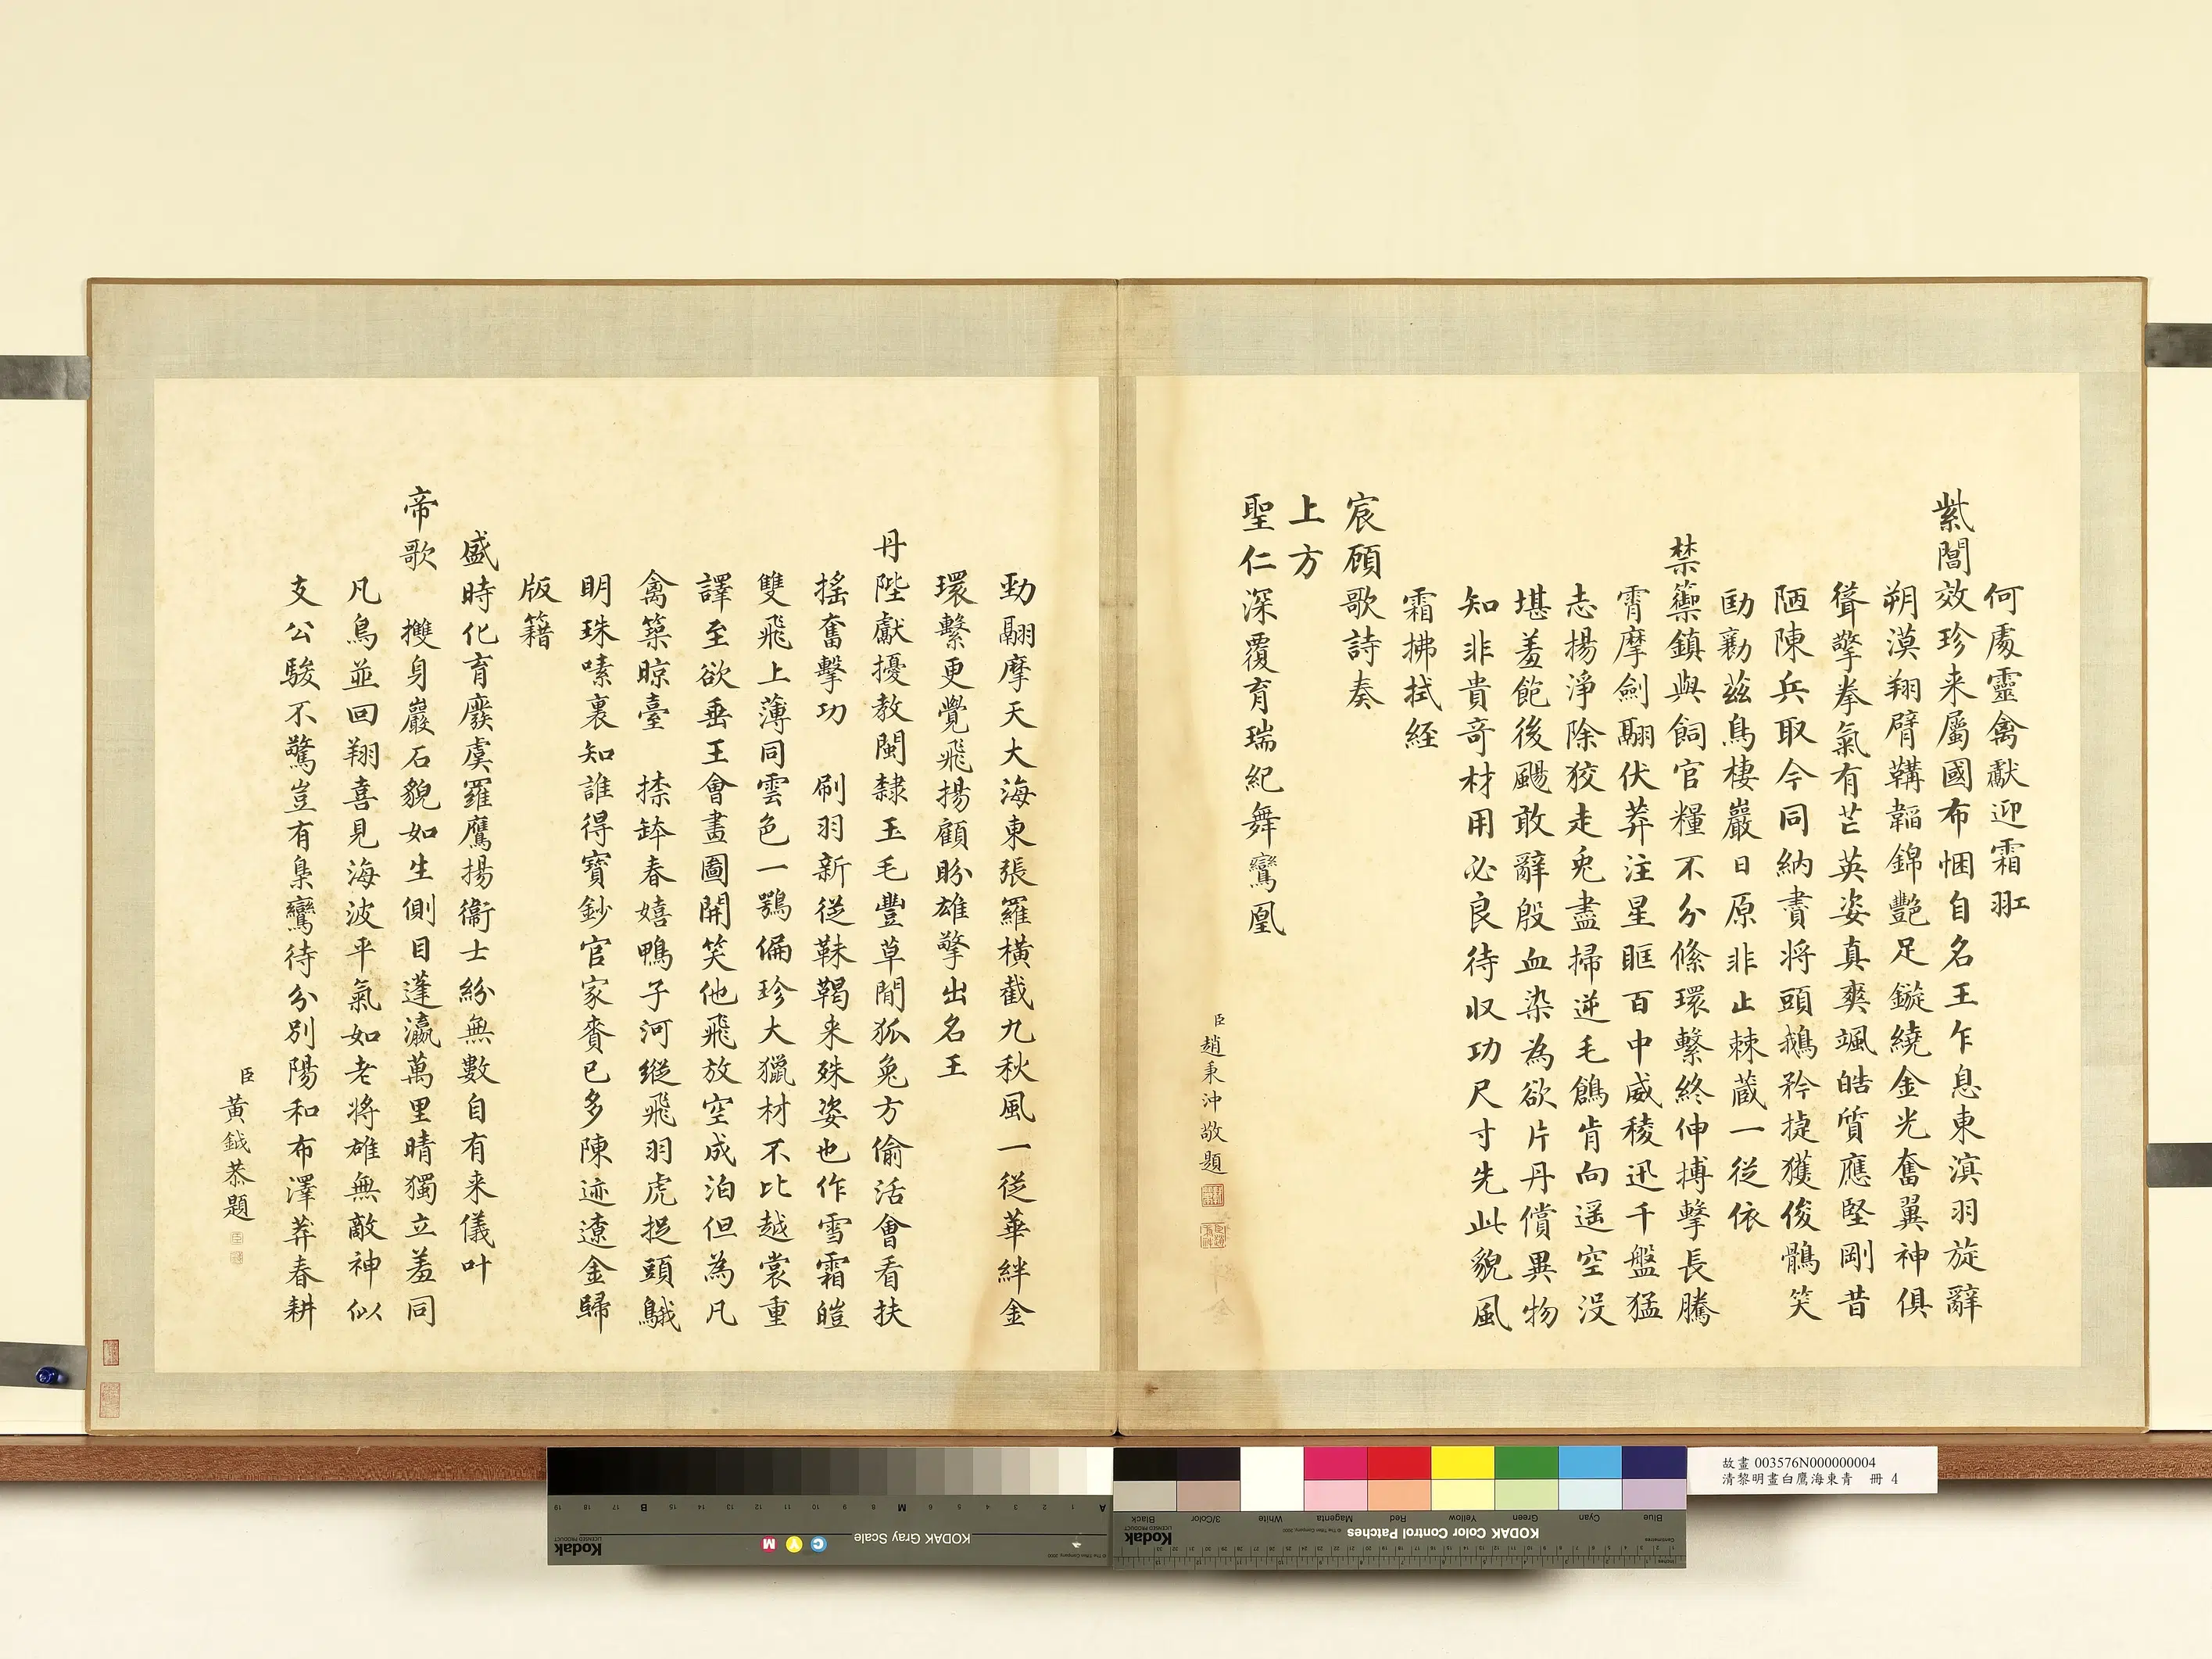 何處靈禽獻迎霜羾
紫閶效珍来屬國布悃自名王乍息東溟羽旋辭
朔漠翔臂韝韜錦艷足鏇繞金光奮翼神俱
聳擎拳氣有芒英姿真爽颯皓質應堅剛昔
陋陳兵取今同納賮將頭鵝矜捷獲俊鶻笑
劻勷茲鳥棲巖日原非止棘蔵一從依
禁籞鎮與飼官糧不分絛環繫終伸搏擊長騰
霄摩劍翮伏莽注星眶百中威稜迅千盤猛
志揚淨除狡走兎盡掃逆毛鶬肯向遥空没
堪羞飽後颺敢辭殷血染為欲片丹償異物
知非貴奇材用必良待収功尺寸先此貌風
霜拂拭経
宸顧歌詩奏
上方
聖仁深覆育瑞紀舞鸞凰
臣趙秉沖敬題
勁翮摩天大海東張羅橫截九秋風一從華絆金
環繫更覺飛揚顧盼雄擎出名王
丹陛獻擾教閩隸玉毛豐草間狐兔方偷活會看扶
搖奮擊功 刷羽新從靺鞨来殊姿也作雪霜皚
雙飛上薄同雲色一鶚偏珍大獵材不比越裳重
譯至欲垂王會畫圖開笑他飛放空成泊但為凡
禽築晾臺 捺鉢春嬉鴨子河縱飛羽虎捉頭鵝
明珠嗉裏知誰得寶鈔官家賚已多陳迹遼金歸
版籍
盛時化育廢虞羅鷹揚衞士紛無數自有来儀叶
帝歌 㩳身巖石貌如生側目蓬瀛萬里晴獨立羞同
凡鳥並回翔喜見海波平氣如老將雄無敵神似
支公駿不驚豈有梟鸞待分別陽和布澤莽春耕
臣黃鉞恭題
故畫 003576N000000004
清黎明畫白鷹海東青 冊 4
KODAK Gray Scale
Kodak
LICENSED PRODUCT
C Y M
KODAK Color Control Patches
Kodak
LICENSED PRODUCT
Blue Cyan Green Yellow Red Magenta White 3/Color Black